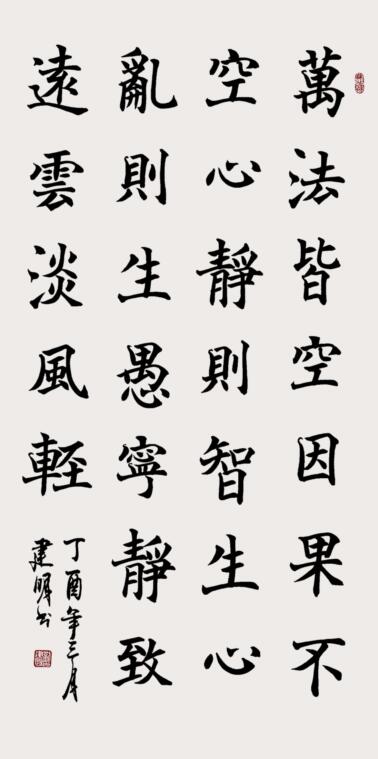 萬法皆空因果不
空心靜則智生心
亂則生愚寧靜致
遠雲淡風輕
丁酉年三月
建明书